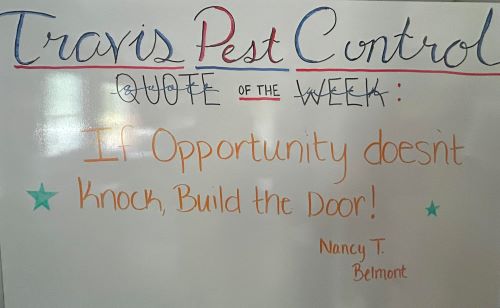 Travis Pest Control
QUOTE OF THE WEEK:
If Opportunity doesn't
Knock, Build the Door!
Nancy T.
Belmont